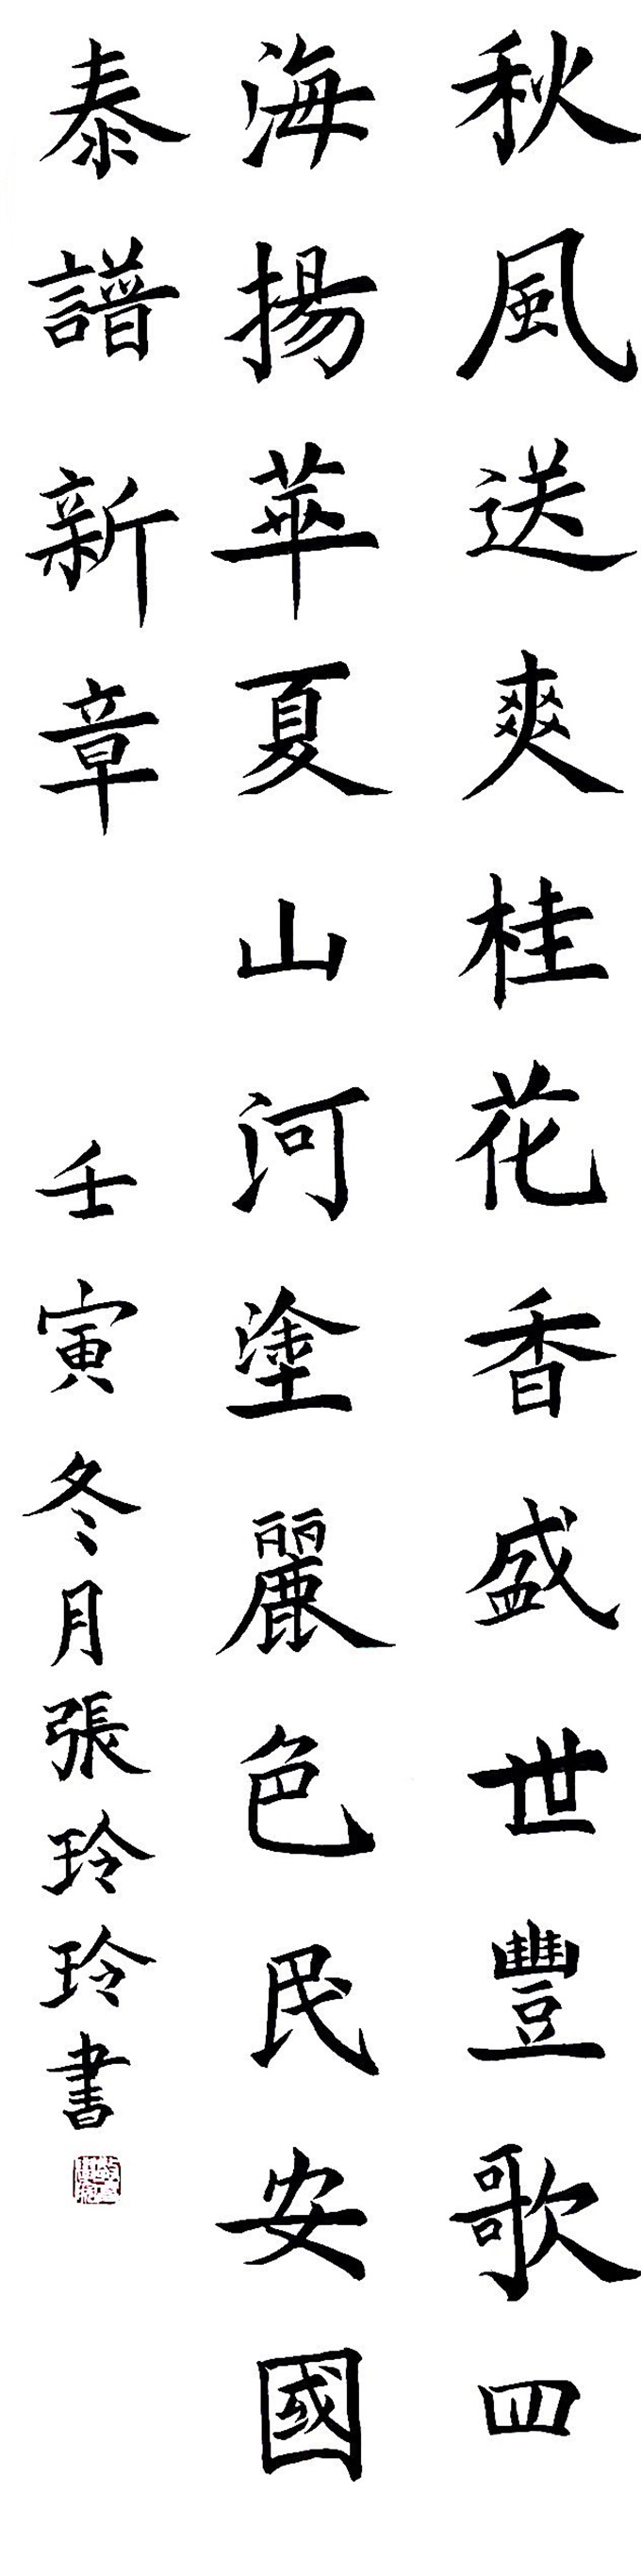 秋風送爽桂花香盛世豐歌四
海揚華夏山河塗麗色民安國
泰譜新章
壬寅冬月張玲玲書